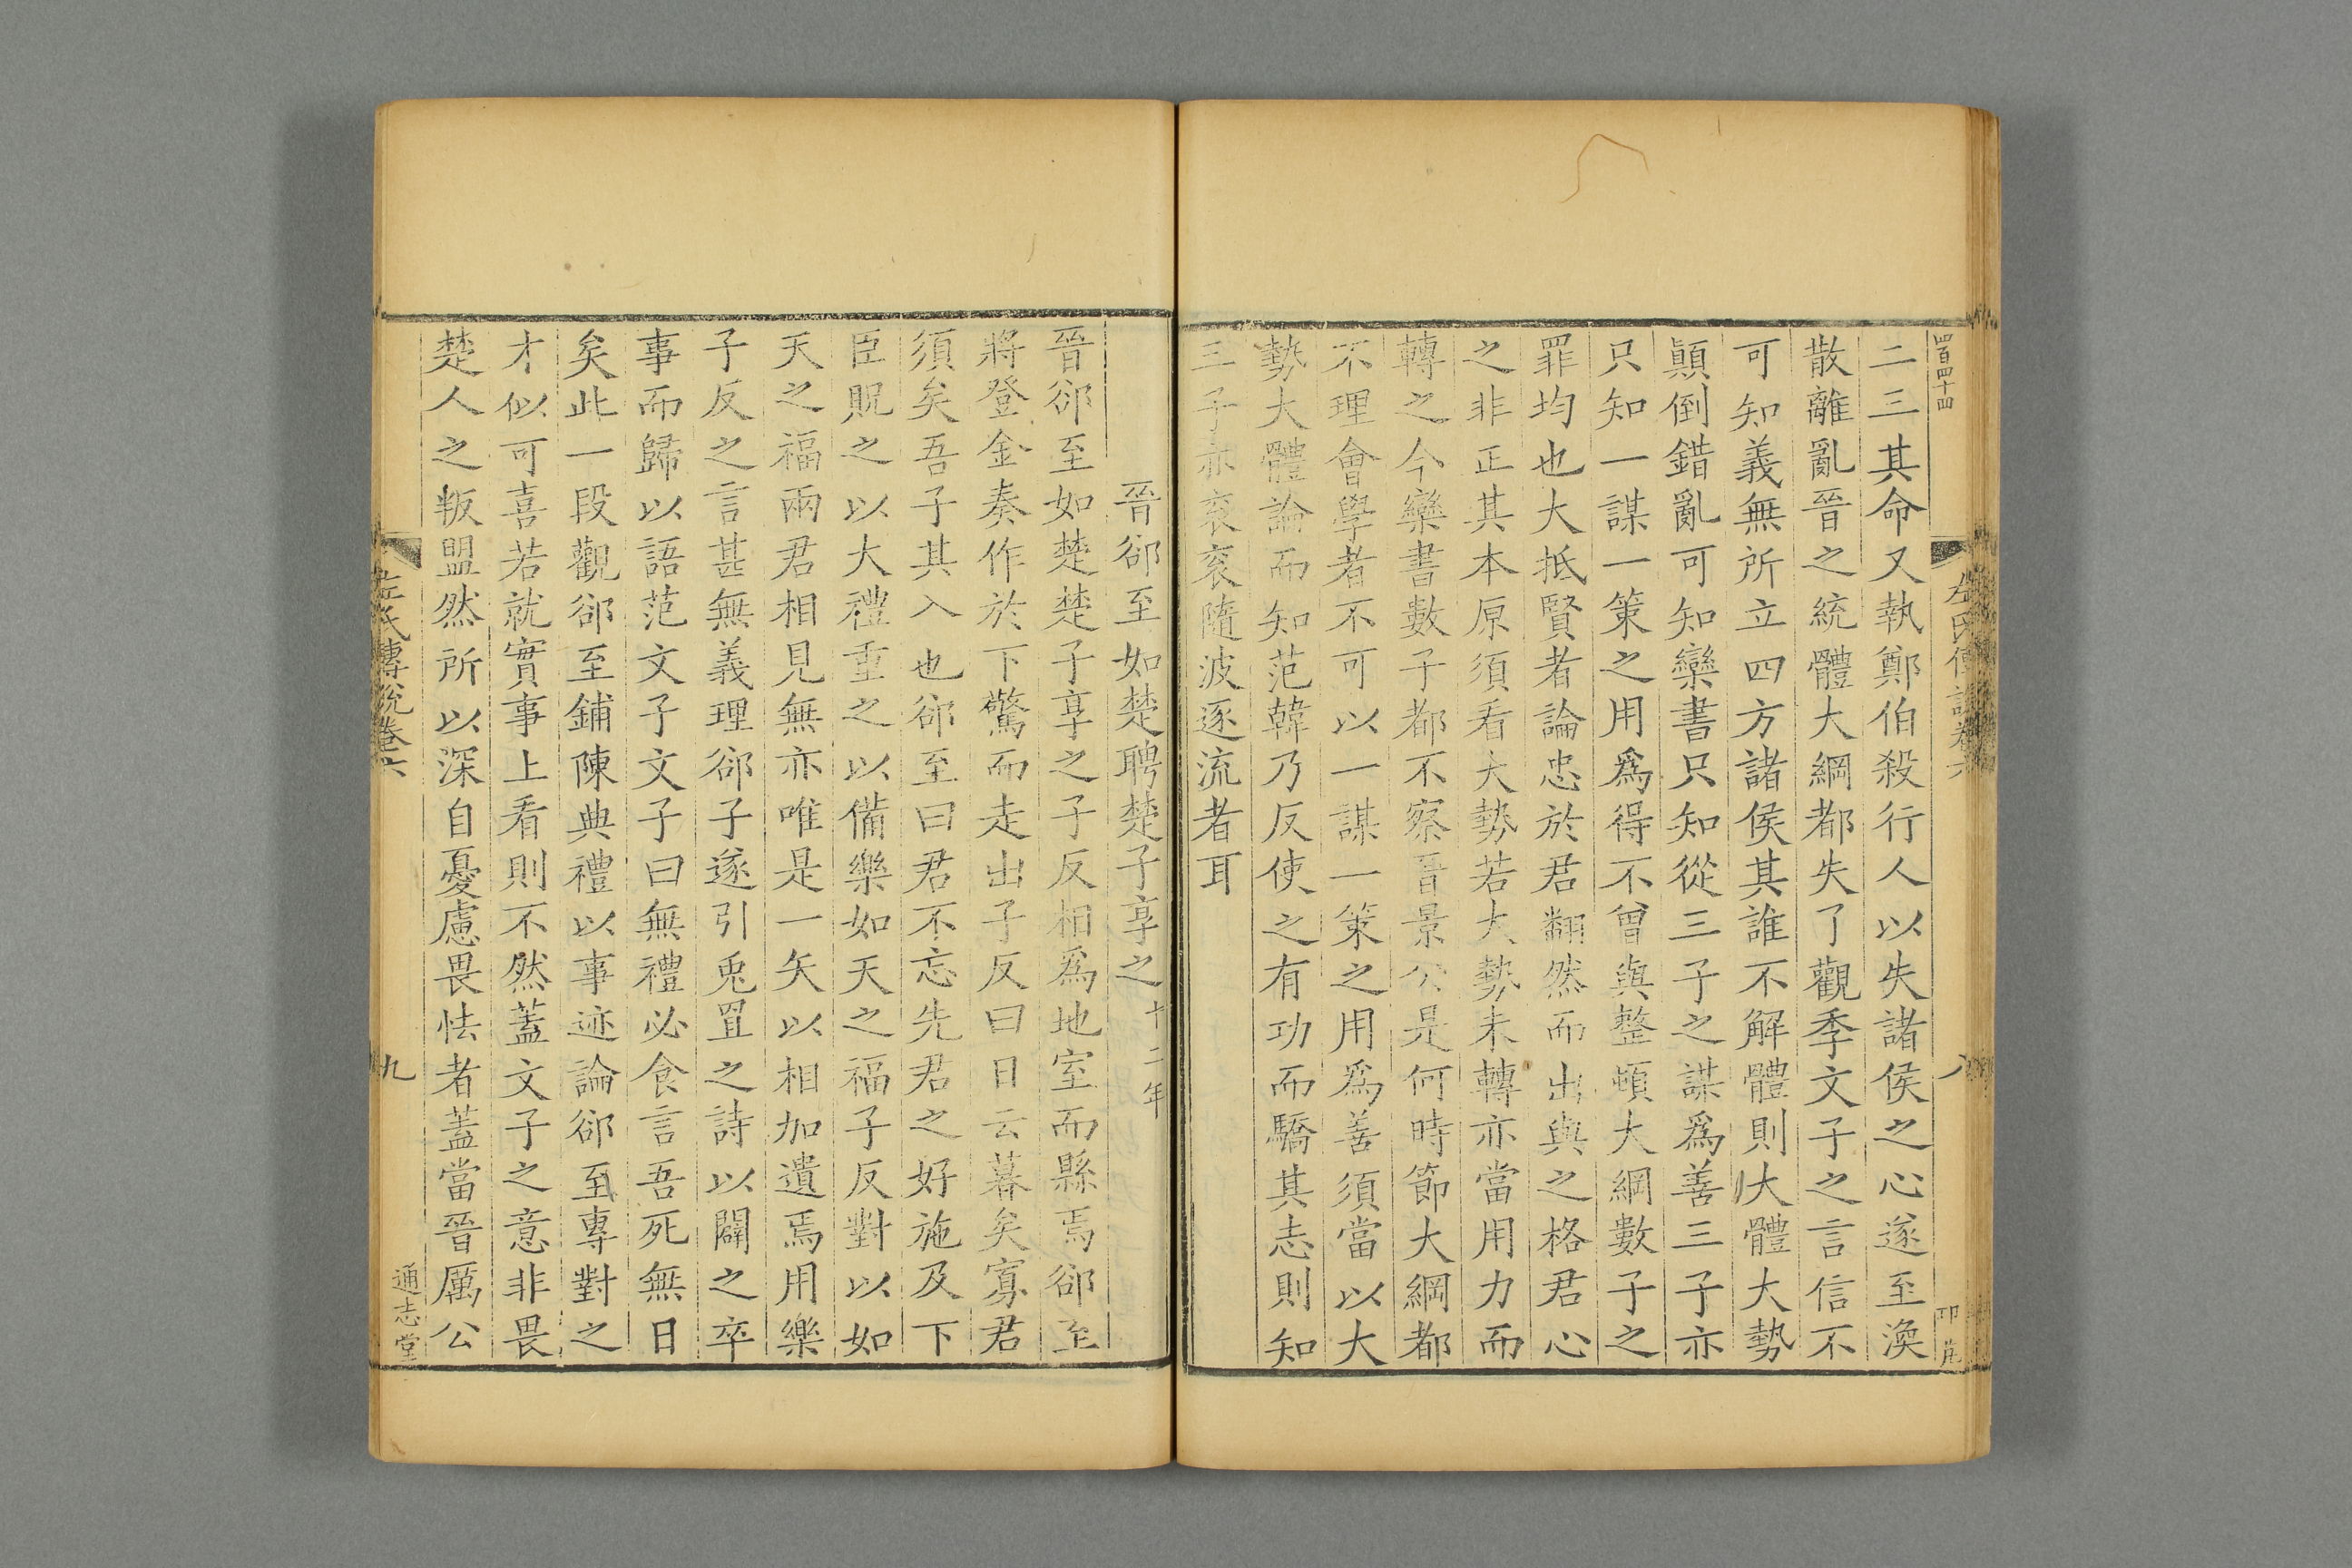 四百四十四
二三其命又執鄭伯殺行人以失諸侯之心遂至渙
散離亂晉之統體大綱都失了觀季文子之言信不
可知義無所立四方諸侯其誰不解體則大體大勢
顛倒錯亂可知欒書只知從三子之謀爲善三子亦
只知一謀一策之用爲得不曾與整頓大綱數子之
罪均也大抵賢者論忠於君翻然而出與之格君心
之非正其本原須看大勢若大勢未轉亦當用力而
轉之今欒書數子都不察晉景公是何時節大綱都
不理會學者不可以一謀一策之用爲善須當以大
勢大體論而知范韓乃反使之有功而驕其志則知
三子亦衮衮隨波逐流者耳
左氏傳說卷六 八
晉郤至如楚聘楚子享之十二年
晉郤至如楚楚子享之子反相爲地室而縣焉郤至
將登金奏作於下驚而走出子反曰日云暮矣寡君
須矣吾子其入也郤至曰君不忘先君之好施及下
臣貺之以大禮重之以備樂如天之福子反對以如
天之福兩君相見無亦唯是一矢以相加遺焉用樂
子反之言甚無義理郤子遂引兎罝之詩以闢之卒
事而歸以語范文子文子曰無禮必食言吾死無日
矣此一段觀郤至鋪陳典禮以事迹論郤至專對之
才似可喜若就實事上看則不然蓋文子之意非畏
楚人之叛盟然所以深自憂慮畏怯者蓋當晉厲公
左氏傳說卷六 九 通志堂